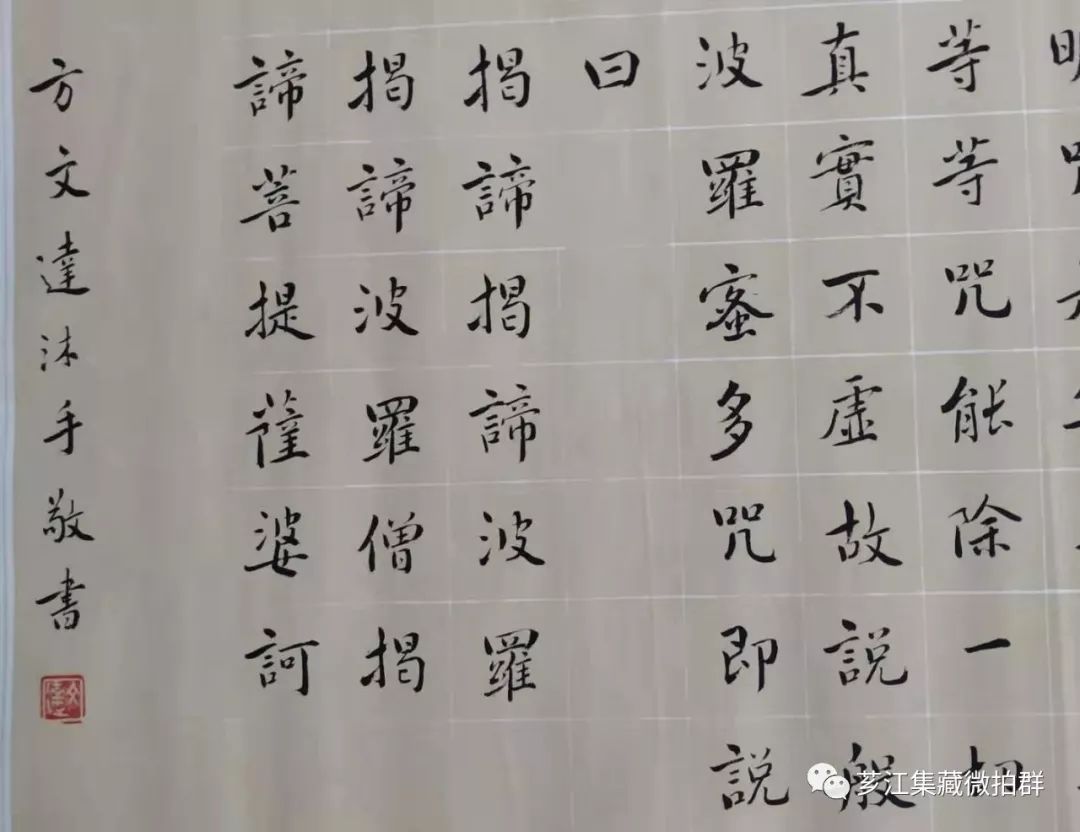 等等咒能除一切
真實不虛故説般
波羅蜜多咒即説
曰
揭諦揭諦波羅
揭諦波羅僧揭
諦菩提薩婆訶
方文達沐手敬書
芗江集藏微拍群